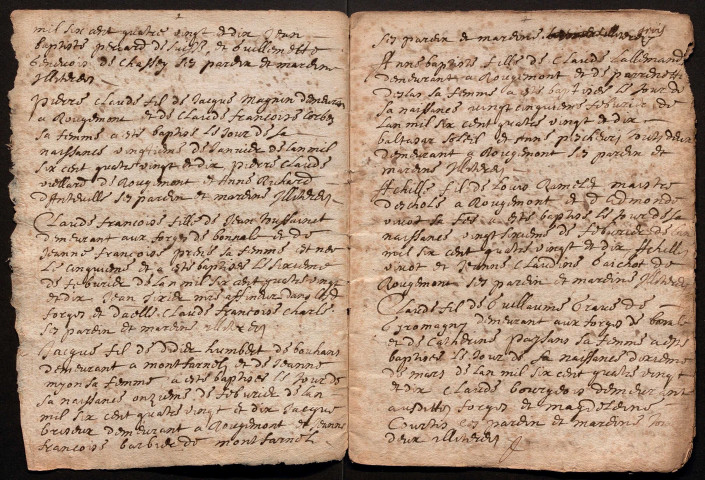 mil six cent quatre vingt et dix Jean
baptiste perrard de et Guillemette
de Chassey ses parein et mareine
Illiterez
Pierre Claude fil de Jacque Magnin demeurant
a Rougemont et de Claude Francoise
sa femme a esté baptisé le Jour de sa
naissance vingtieme de Janvier de lan mil
six cent quatre vingt et dix pierre Claude
vieillard de Rougemont et Anne Richard
ses parein et mareine Illiterez
Claude Francoise fille de Jean
demeurant aux forges de bonnal et de
Jeanne Francoise sa femme est nee
le Cinquieme et a esté baptisee le sixieme
de febvrier de lan mil six cent quatre vingt
et dix Jean affineur
forges et Claude Francoise Charle
ses parein et mareine illiterez
Jacque fil de didier humbert de bouhans
demeurant a montfarnel et de Jeanne
myon sa femme a esté baptisé le Jour de
sa naissance onzieme de febvrier de lan
mil six cent quatre vingt et dix Jacque
demeurant a Rougemont et Jeanne
francoise barbier de montfarnel
ses parein et mareine
Anne baptiste fille de Claude Lallemand
demeurant a Rougemont et de
sa femme a esté baptisee le Jour de
sa naissance vingt cinquieme febvrier de
lan mil six cent quatre vingt et dix
baltazar et Anne tous deux
demeurant a Rougemont ses parein et
mareine Illiterez
Achille fil de Louis Ramelet maistre
deschole a Rougemont et dadmonde
vinot sa fe a esté baptisé le Jour de sa
naissance vingt sixieme de febvrier de lan
mil six cent quatre vingt et dix Achille
vinot et Jeanne Claudine de
Rougemont ses parein et mareine Illiterez
Claude fil de Guillaume de
Gromagny demeurant aux forges de bonal
et de Catherine sa femme a esté
baptisé le Jour de sa naissance dixieme
de mars de lan mil six cent quatre vingt
et dix Claude bourgeois demeurant
auxdittes forges et magdeleine
Curtis ses parein et mareine tou
deux illiterez